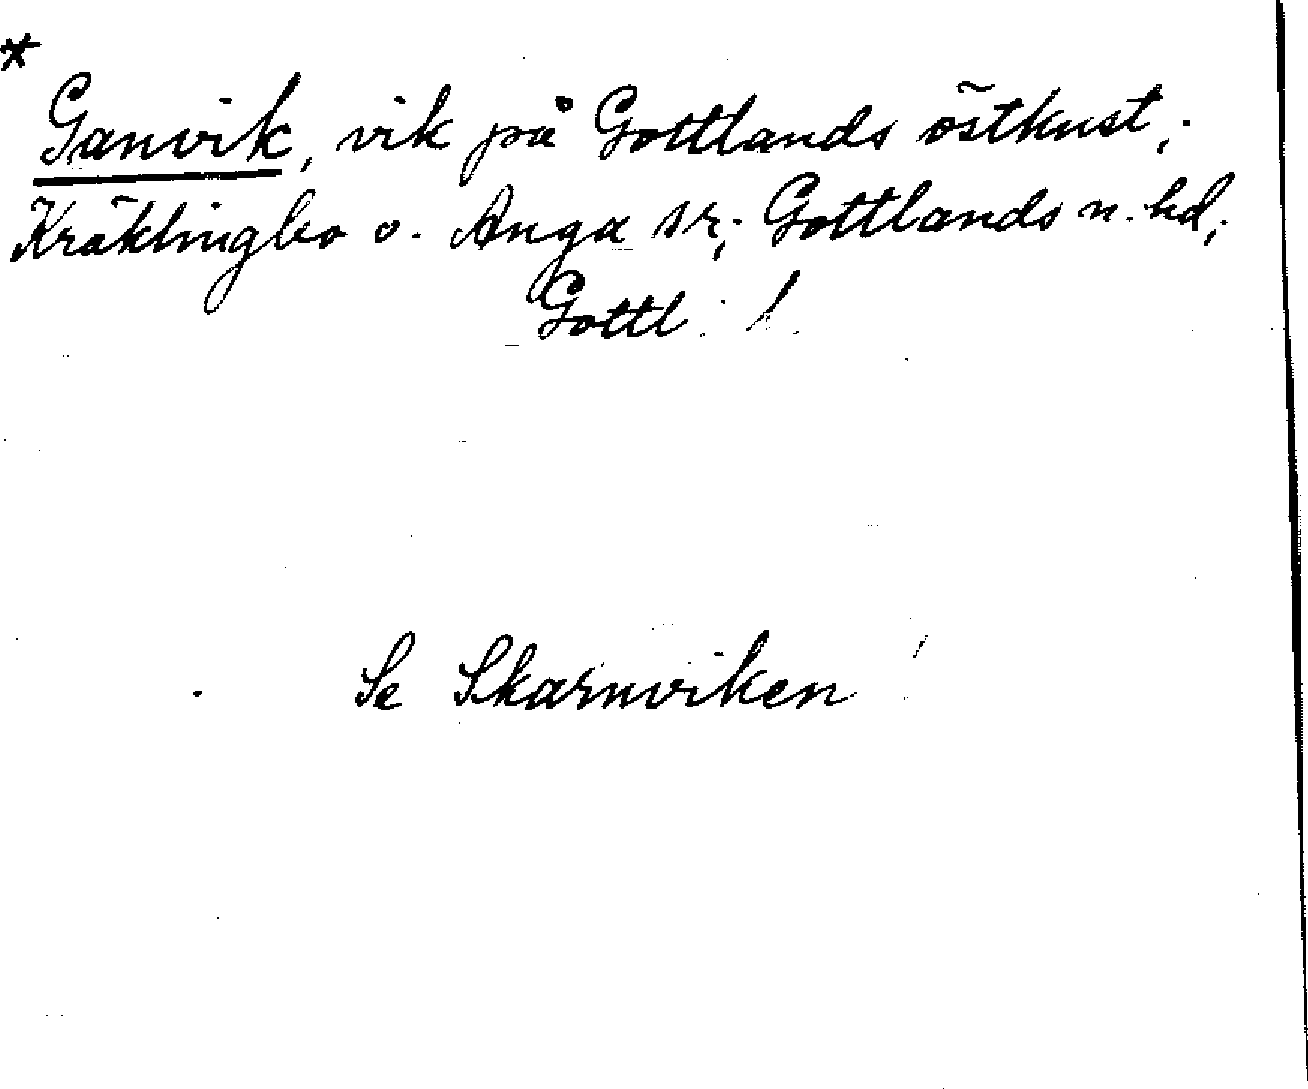 *
Ganvik, vik på Gottlands östkust,
Kräklingbo o. Anga sr, Gottlands n. hd,
Gottl. l.
Se Skarnviken